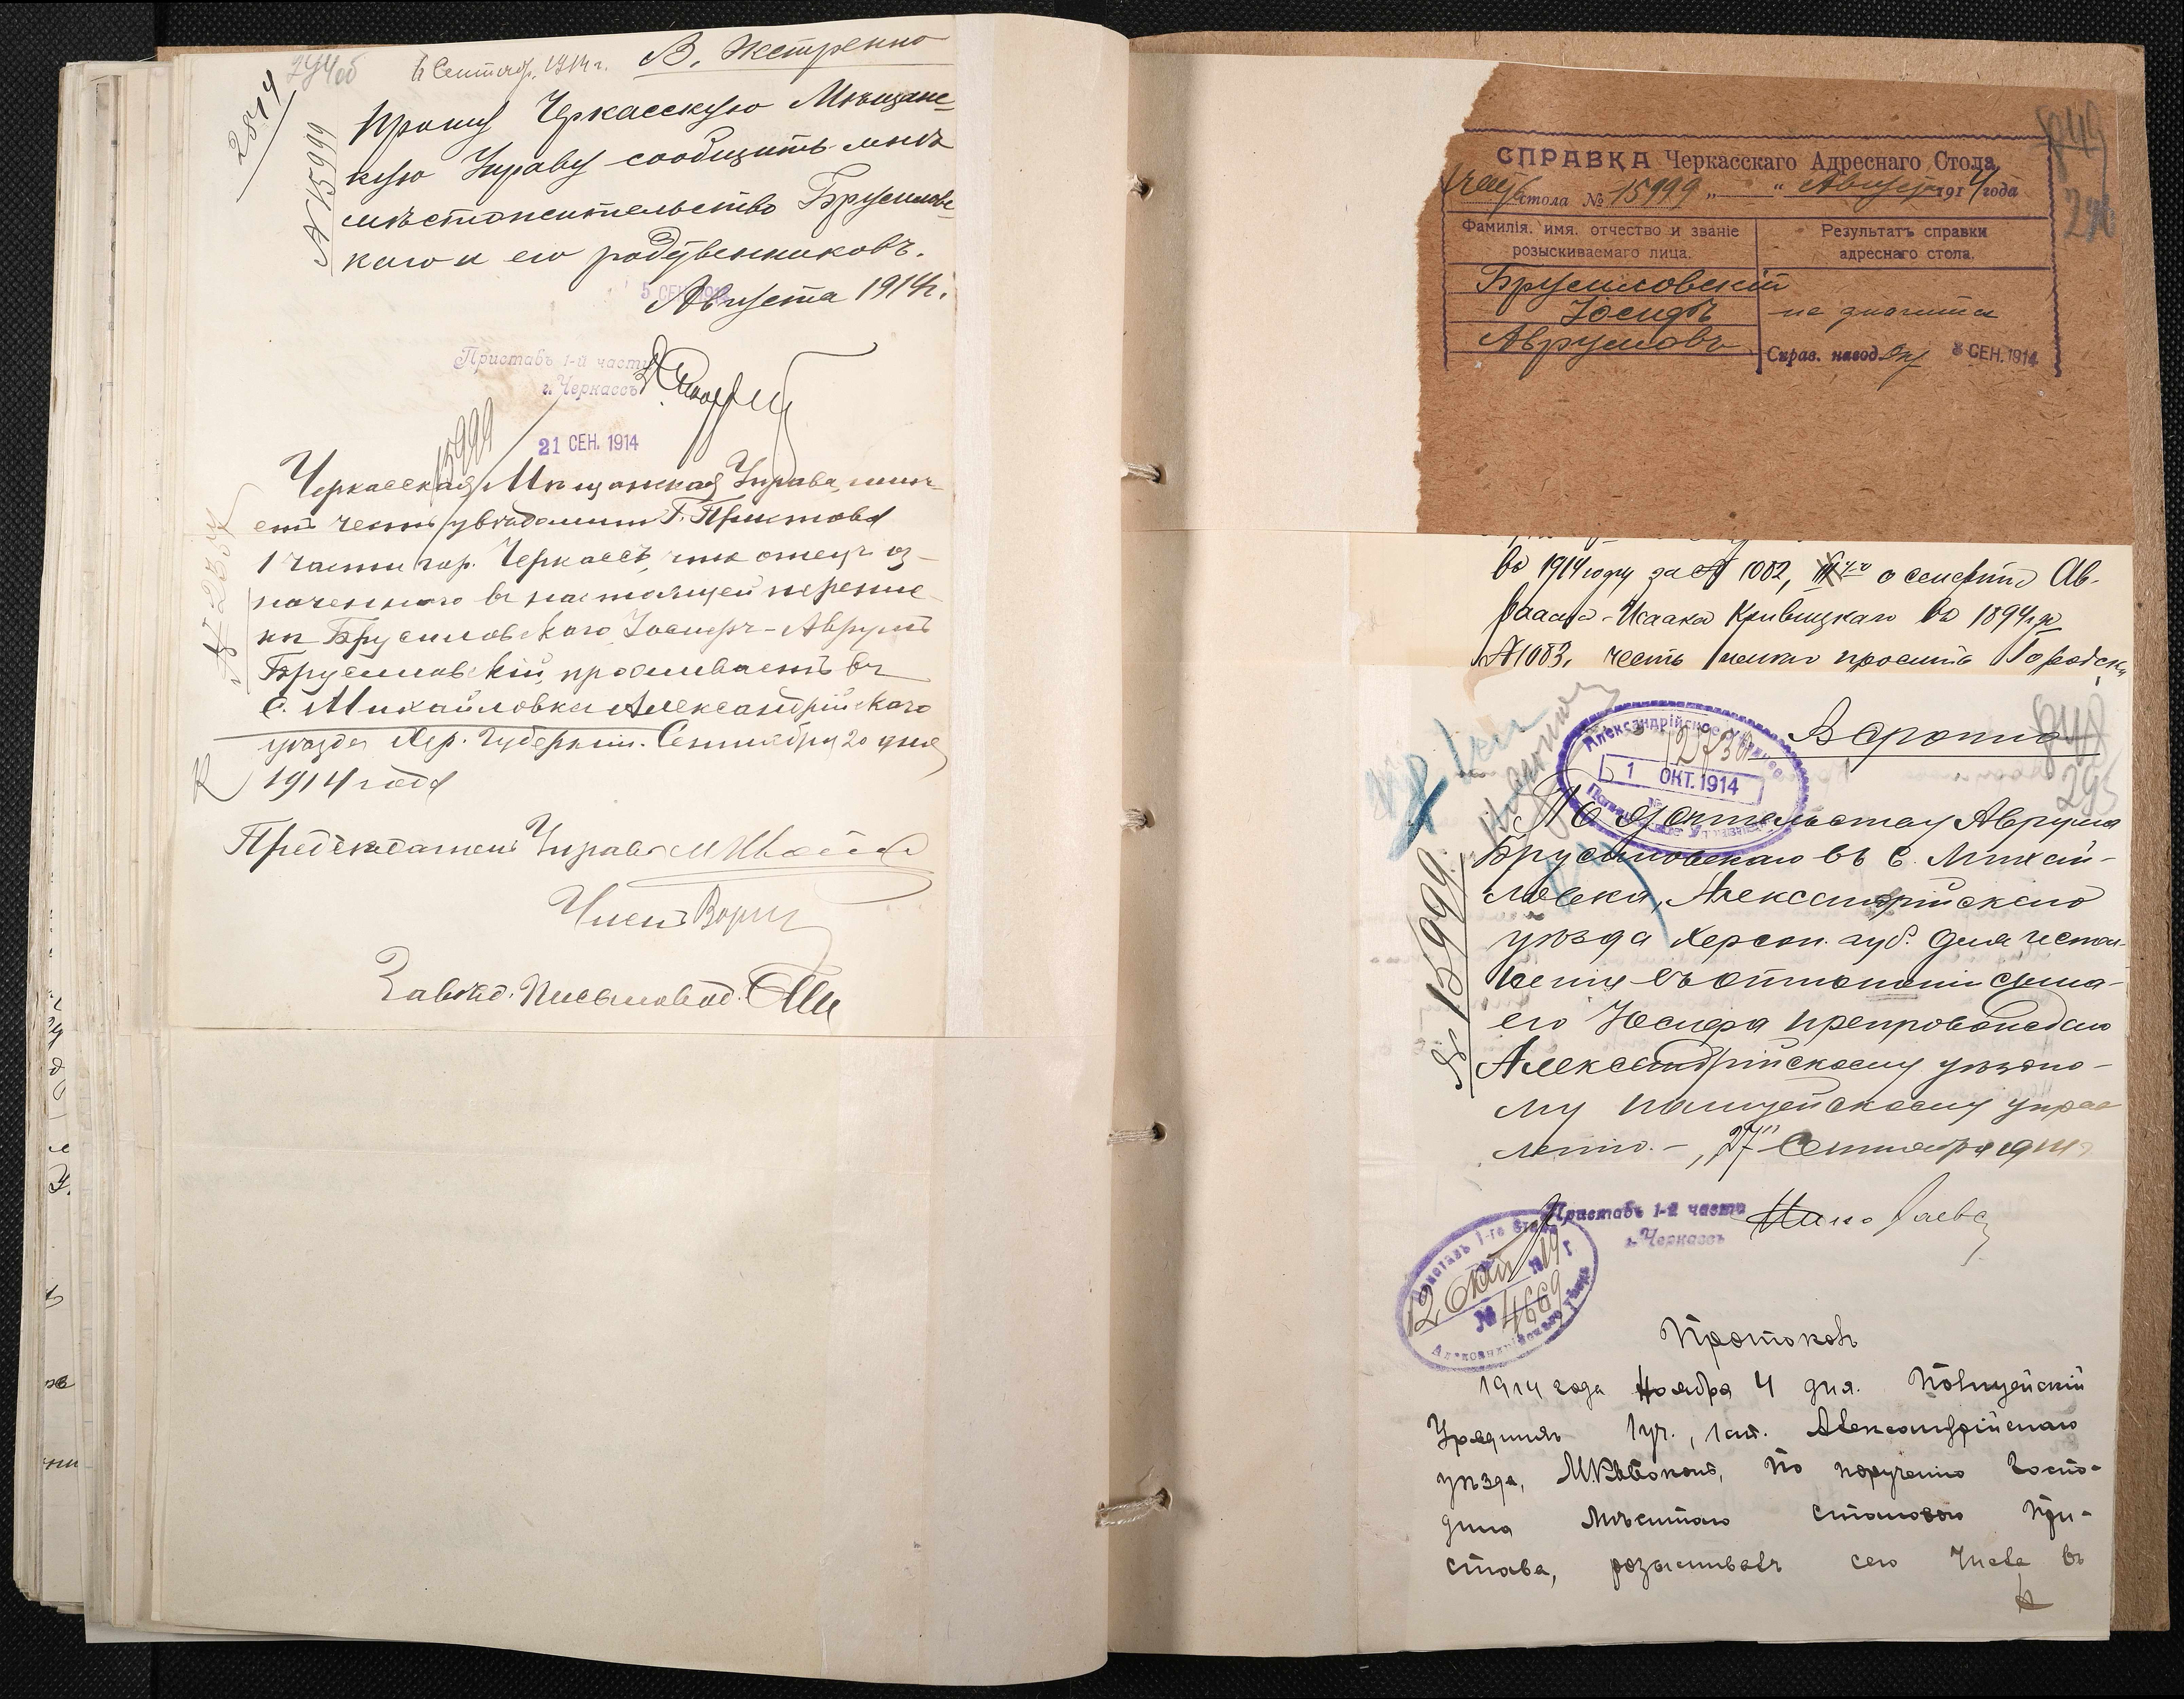 294об
6 Сентябр. 1914 г. В. Экстренно
2814
№ 15999
Прошу Черкасскую Мѣщанс-
кую Управу сообщить мнѣ
мѣстожительство Брусиловс-
каго и его родственниковъ.
Августа 1914 г.
5 СЕН. 1914
Приставъ 1-й части
г. Черкассъ
21 СЕН. 1914
15999
Черкасская Мѣщанская Управа имѣ-
етъ честь увѣдомить Г. Пристова
1 части гор. Черкассъ, что отецъ оз-
наченного въ настоящей перепис-
кѣ Брусиловскаго Іосифъ-Аврумъ
Брусиловскій, проживаетъ въ
с. Михайловке Александрійскаго
уѣзда Хер. Губерніи. Сентября 20 дня
1914 года
Предсѣдатель Управы
Членъ
Завѣд. Письмовод.
СПРАВКА Черкасскаго Адреснаго Стола
стола № 15999 „ — “ Августа 1914 года
Фамилія, имя, отчество и званіе
розыскиваемаго лица.
Результатъ справки
адреснаго стола.
Брусиловскій
Іосифъ
Аврумовъ
не значится
Справ. навод. 3 СЕН. 1914
во 1914 году за № 1082, о смерти Ав-
раама-Исаака Кривицкаго во 1894 г. за
№ 1083, честь имѣю просить Городск
848
295
Срочно
Александрійское Уѣздное
12730
1 ОКТ. 1914
Полицейское Управленіе
№ 15999
По жительству Аврума
Брусиловскаго въ с. Михай-
ловка, Александрійскаго
уѣзда Херсон. губ. для испол-
ненія въ отношеніи сына
его Іосифа препровождаю
Александрійскому уѣздно-
му полицейскому управ
ленію. – „27" Сентября 1914 г
Приставъ 1-й части
г. Черкассъ
Приставъ 1-го Стана
12 Окт 1914 г
№ 4669
Александрійскаго Уѣзда
Протоколъ
1914 года Ноября 4 дня. Полицейскій
Урядникъ 1 уч., 1 ст. Александрійскаго
уѣзда, по порученію Госпо-
дина Мѣстнаго станового При-
става, розыскивалъ сего числа въ